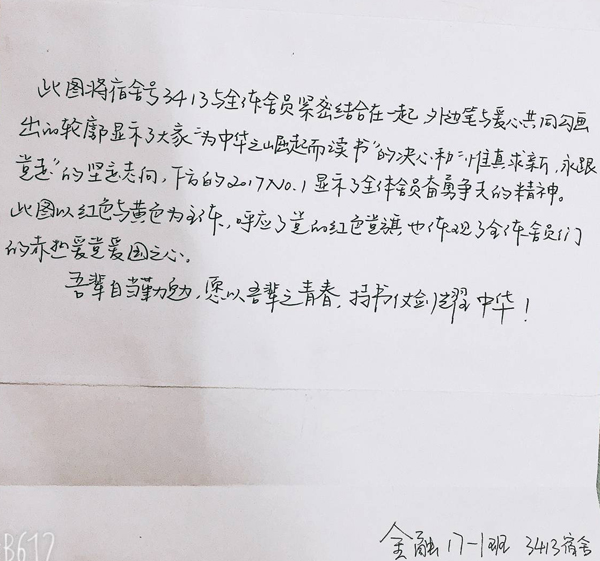 此图将宿舍号3413与全体舍员紧密结合在一起 外边笔与爱心共同勾画
出的轮廓显示了大家“为中华之崛起而读书”的决心和“惟真求新,永跟
党走”的坚定志向,下方的2017No.1显示了全体舍员奋勇争先的精神。
此图以红色与黄色为主体,呼应了党的红色党旗,也体现了全体舍员们
的赤热爱党爱国之心。
吾辈自当勤勉,愿以吾辈之青春,持书仗剑耀中华!
金融17-1班 3413宿舍
B612